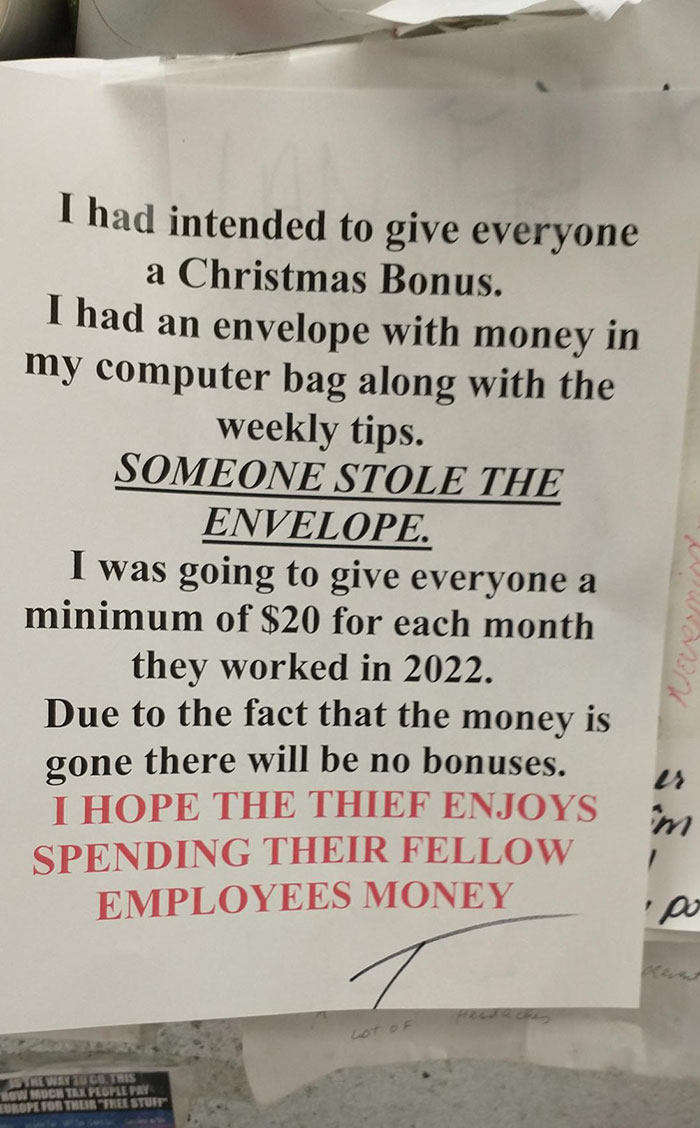 I had intended to give everyone
a Christmas Bonus.
I had an envelope with money in
my computer bag along with the
weekly tips.
SOMEONE STOLE THE
ENVELOPE.
I was going to give everyone a
minimum of $20 for each month
they worked in 2022.
Due to the fact that the money is
gone there will be no bonuses.
I HOPE THE THIEF ENJOYS
SPENDING THEIR FELLOW
EMPLOYEES MONEY
Nevermind
LOT OF Headaches
THE WAY TO GO. THIS
HOW MUCH TAX PEOPLE PAY
EUROPE FOR THEIR "FREE STUFF"